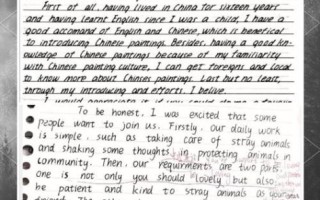 First of all, having lived in China for sixteen years
and having learnt English since I was a child, I have a
good accomand of English and Chinese, which is benefical
to introducing Chinese paintings. Besides, having a good kn-
owledge of Chinese paintings because of my familiarity
with Chinese painting culture, I can get foreigns and local
to know more about Chinses paintings. Last but no least,
through my introducing and efforts, I belive.
I would appreciate it if you could
To be honest, I was excited that some
people want to join us. Firstly, our daily work
is simple, such as taking care of stray animals
and shaking some thoughts in protecting animals in
community. Then, our requirments are two parts.
one is not only you should lovely but also
be patient and kind to stray animals as your